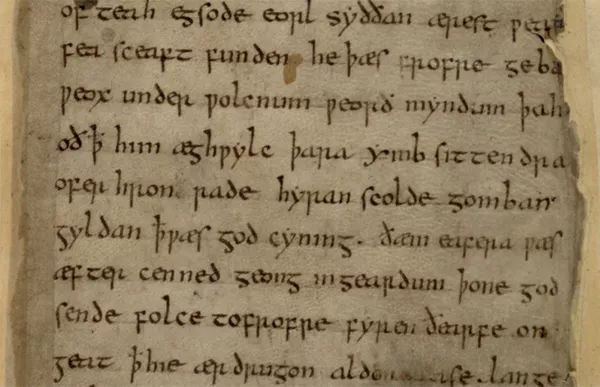 ofteah egsode eorl syððan ærest ƿear
fea sceaft funden he þæs frofre geba
ƿeox under ƿolcnum ƿeorð myndum þah
oð ꝥ him æghƿylc þara ymb sittendra
ofer hron rade hyran scolde gomban
gyldan ꝥ ƿæs god cyning. ðæm eafera ƿæs
æfter cenned geong in geardum þone god
sende folce tofrofre fyren ðearfe on
geat ꝥ hie ær drugon lange